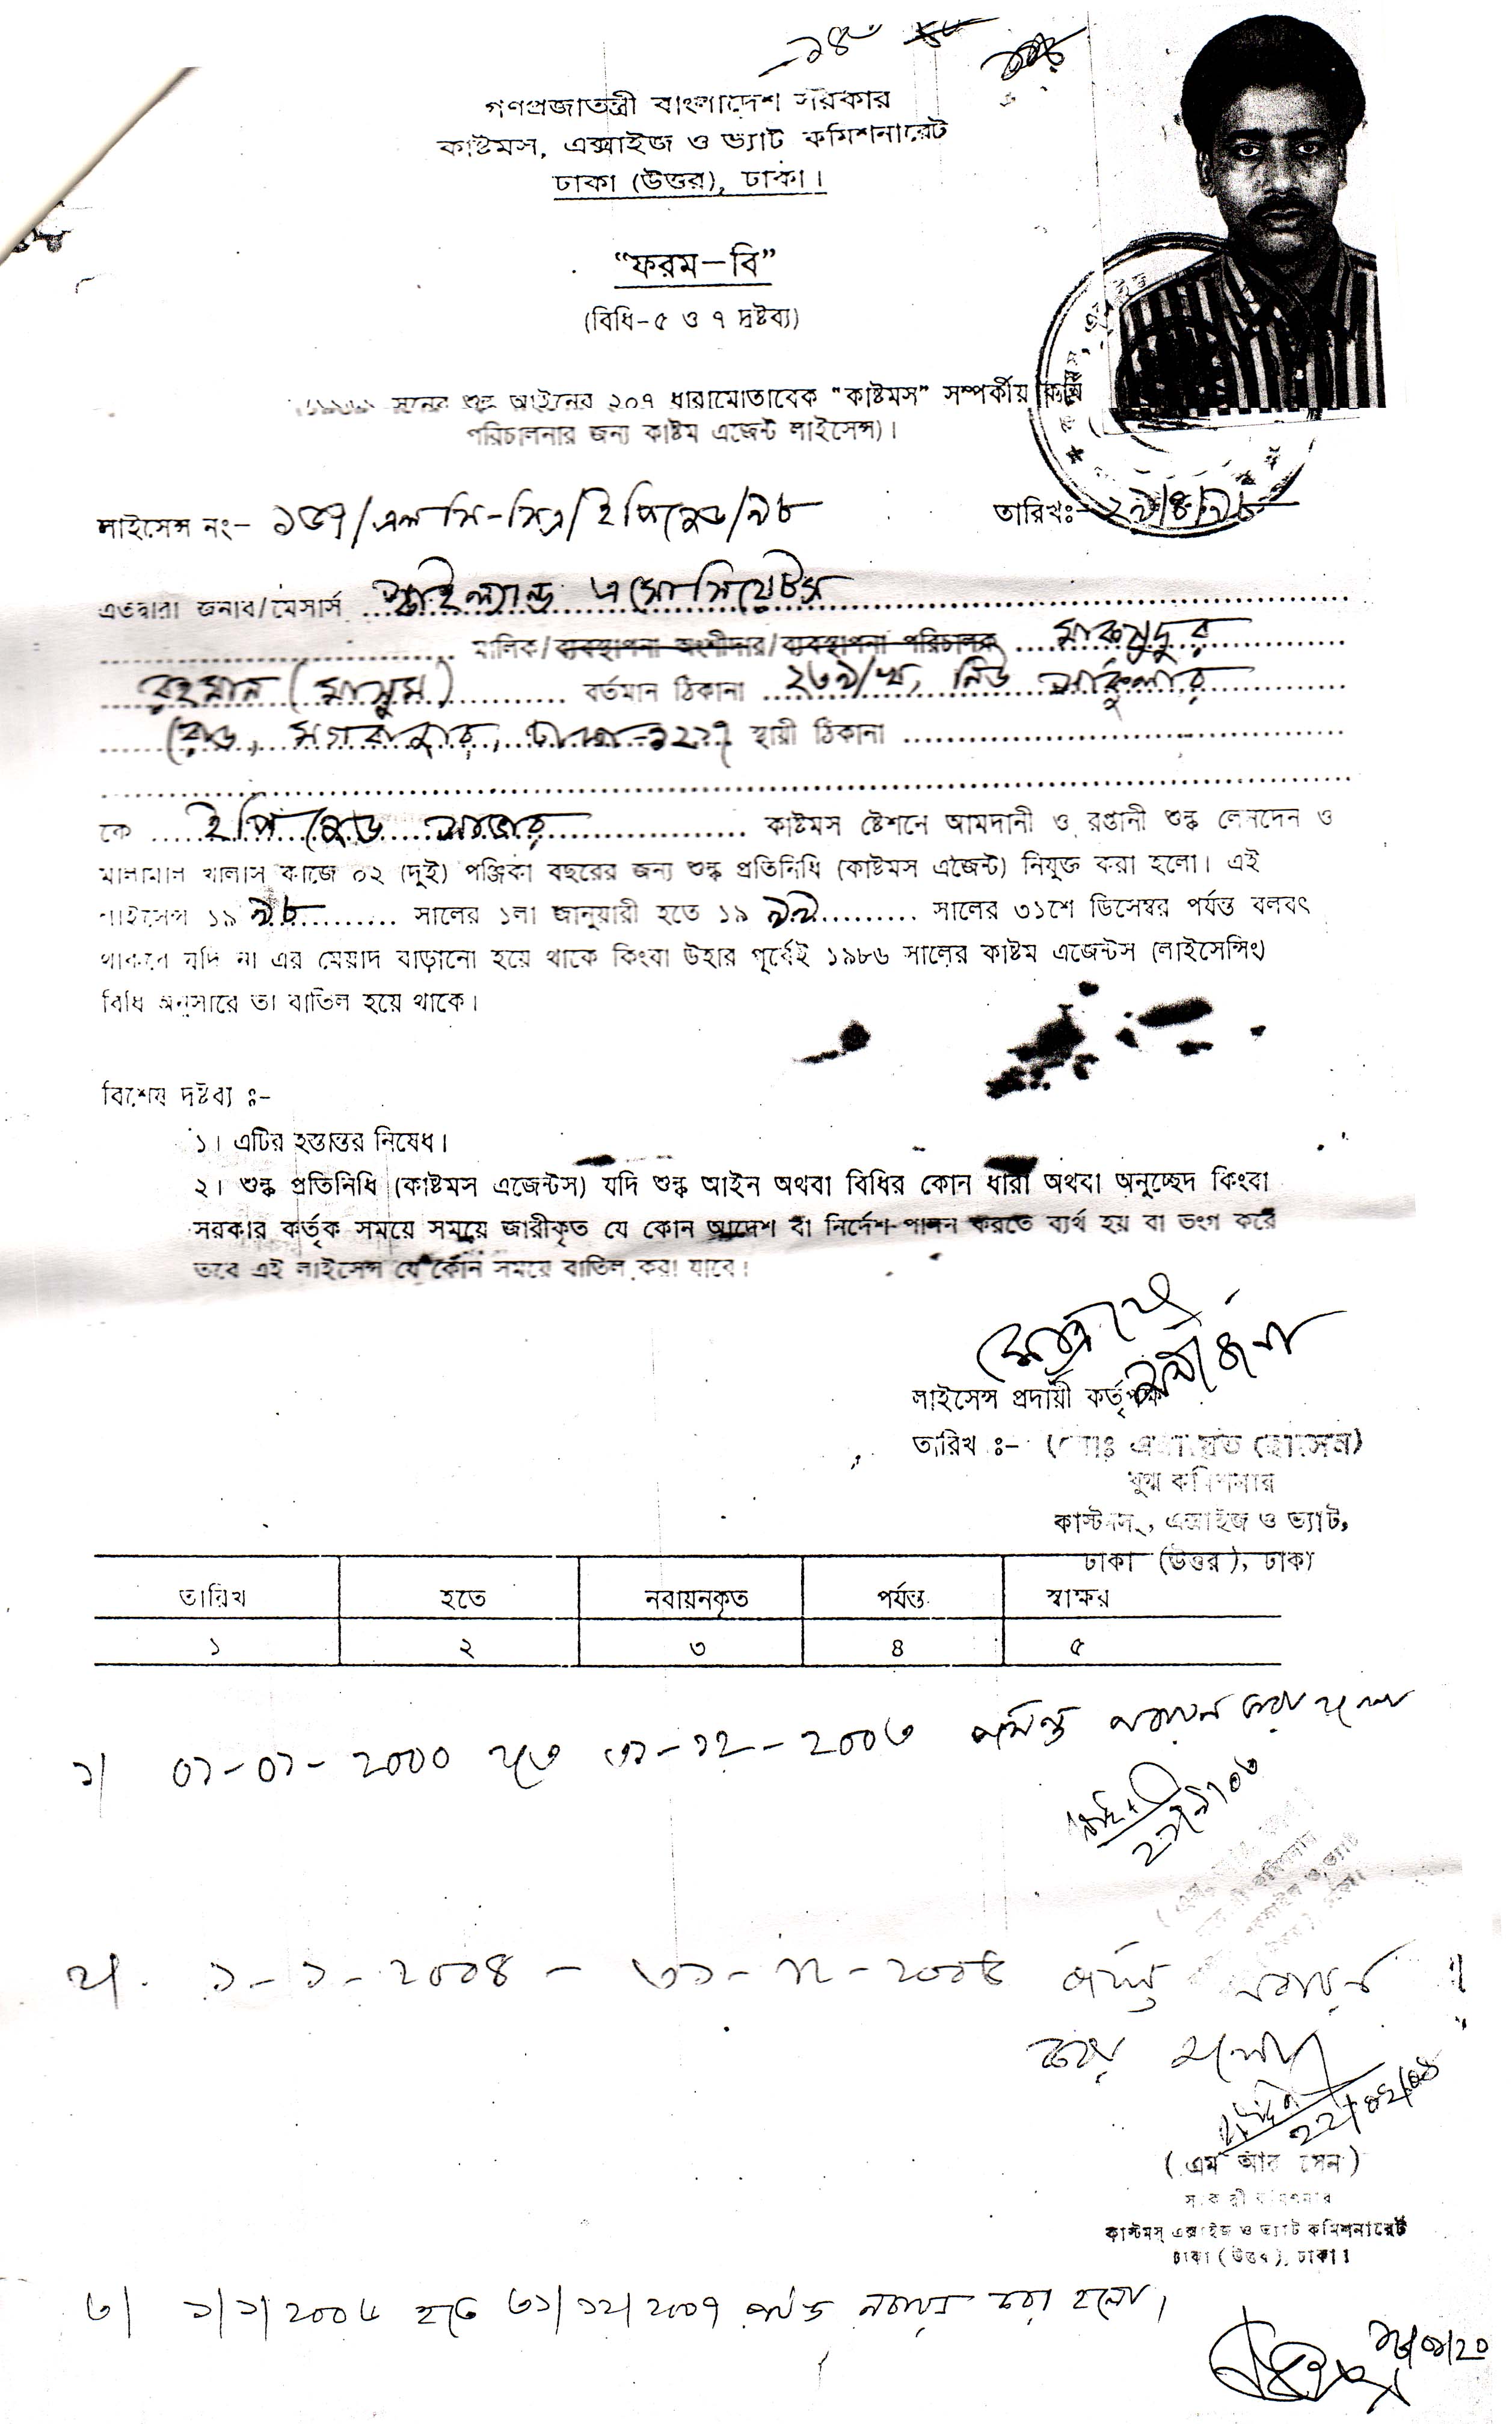 গণপ্রজাতন্ত্রী বাংলাদেশ সরকার
কাষ্টমস, এক্সাইজ ও ভ্যাট কমিশনারেট
ঢাকা (উত্তর), ঢাকা।
“ফরম—বি”
(বিধি-৫ ও ৭ দ্রষ্টব্য)
সনের শুল্ক আইনের ২০৭ ধারামোতাবেক “কাষ্টমস” সম্পর্কীয়
পরিচালনার জন্য কাষ্টম এজেন্ট লাইসেন্স)।
লাইসেন্স নং- ১৩৭/এল সি-সিএ/ইপিজেড/৯৮ তারিখঃ- ২৯/৪/৯৮
এতদ্বারা জনাব/মেসার্স এসোসিয়েটস
মালিক/ব্যবস্থাপনা অংশীদার/ব্যবস্থাপনা পরিচালক
রহমান (মাসুম) বর্তমান ঠিকানা ২৩৯/খ, নিউ সার্কুলার
রোড, মগবাজার, ঢাকা-১২১৭ স্থায়ী ঠিকানা
কে ইপিজেড সাভার কাষ্টমস ষ্টেশনে আমদানী ও রপ্তানী শুল্ক লেনদেন ও
মালামাল খালাস কাজে ০২ (দুই) পঞ্জিকা বছরের জন্য শুল্ক প্রতিনিধি (কাষ্টমস এজেন্ট) নিযুক্ত করা হলো। এই
লাইসেন্স ১৯ ৯৮ সালের ১লা জানুয়ারী হতে ১৯ ৯৯ সালের ৩১শে ডিসেম্বর পর্যন্ত বলবৎ
থাকবে যদি না এর মেয়াদ বাড়ানো হয়ে থাকে কিংবা উহার পূর্বেই ১৯৮৬ সালের কাষ্টম এজেন্টস (লাইসেন্সিং)
বিধি অনুসারে তা বাতিল হয়ে থাকে।
বিশেষ দ্রষ্টব্য ঃ-
১। এটির হস্তান্তর নিষেধ।
২। শুল্ক প্রতিনিধি (কাষ্টমস এজেন্টস) যদি শুল্ক আইন অথবা বিধির কোন ধারা অথবা অনুচ্ছেদ কিংবা
সরকার কর্তৃক সময়ে সময়ে জারীকৃত যে কোন আদেশ বা নির্দেশ পালন করতে ব্যর্থ হয় বা ভংগ করে
তবে এই লাইসেন্স যে কোন সময়ে বাতিল করা যাবে।
লাইসেন্স প্রদায়ী কর্তৃপক্ষ
তারিখ ঃ- হোসেন)
যুগ্ম কমিশনার
কাস্টমস, এক্সাইজ ও ভ্যাট,
ঢাকা (উত্তর), ঢাকা
তারিখ হতে নবায়নকৃত পর্যন্ত স্বাক্ষর
১ ২ ৩ ৪ ৫
১| ০১-০১-২০০০ হতে ৩১-১২-২০০৩ পর্যন্ত নবায়ন করা হলো
২। ১-১-২০০৪ - ৩১-১২-২০০৫ পর্যন্ত নবায়ন
করা হলো।
(এম আর সেন)
কাস্টমস্ এক্সাইজ ও ভ্যাট কমিশনারেট
ঢাকা (উত্তর), ঢাকা।
৩| ১/১/২০০৬ হতে ৩১/১২/২০০৭ পর্যন্ত নবায়ন করা হলো।